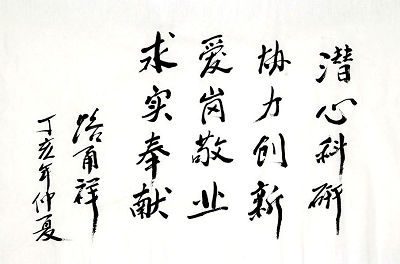 潜心科研
协力创新
爱岗敬业
求实奉献
路甬祥
丁亥年仲夏